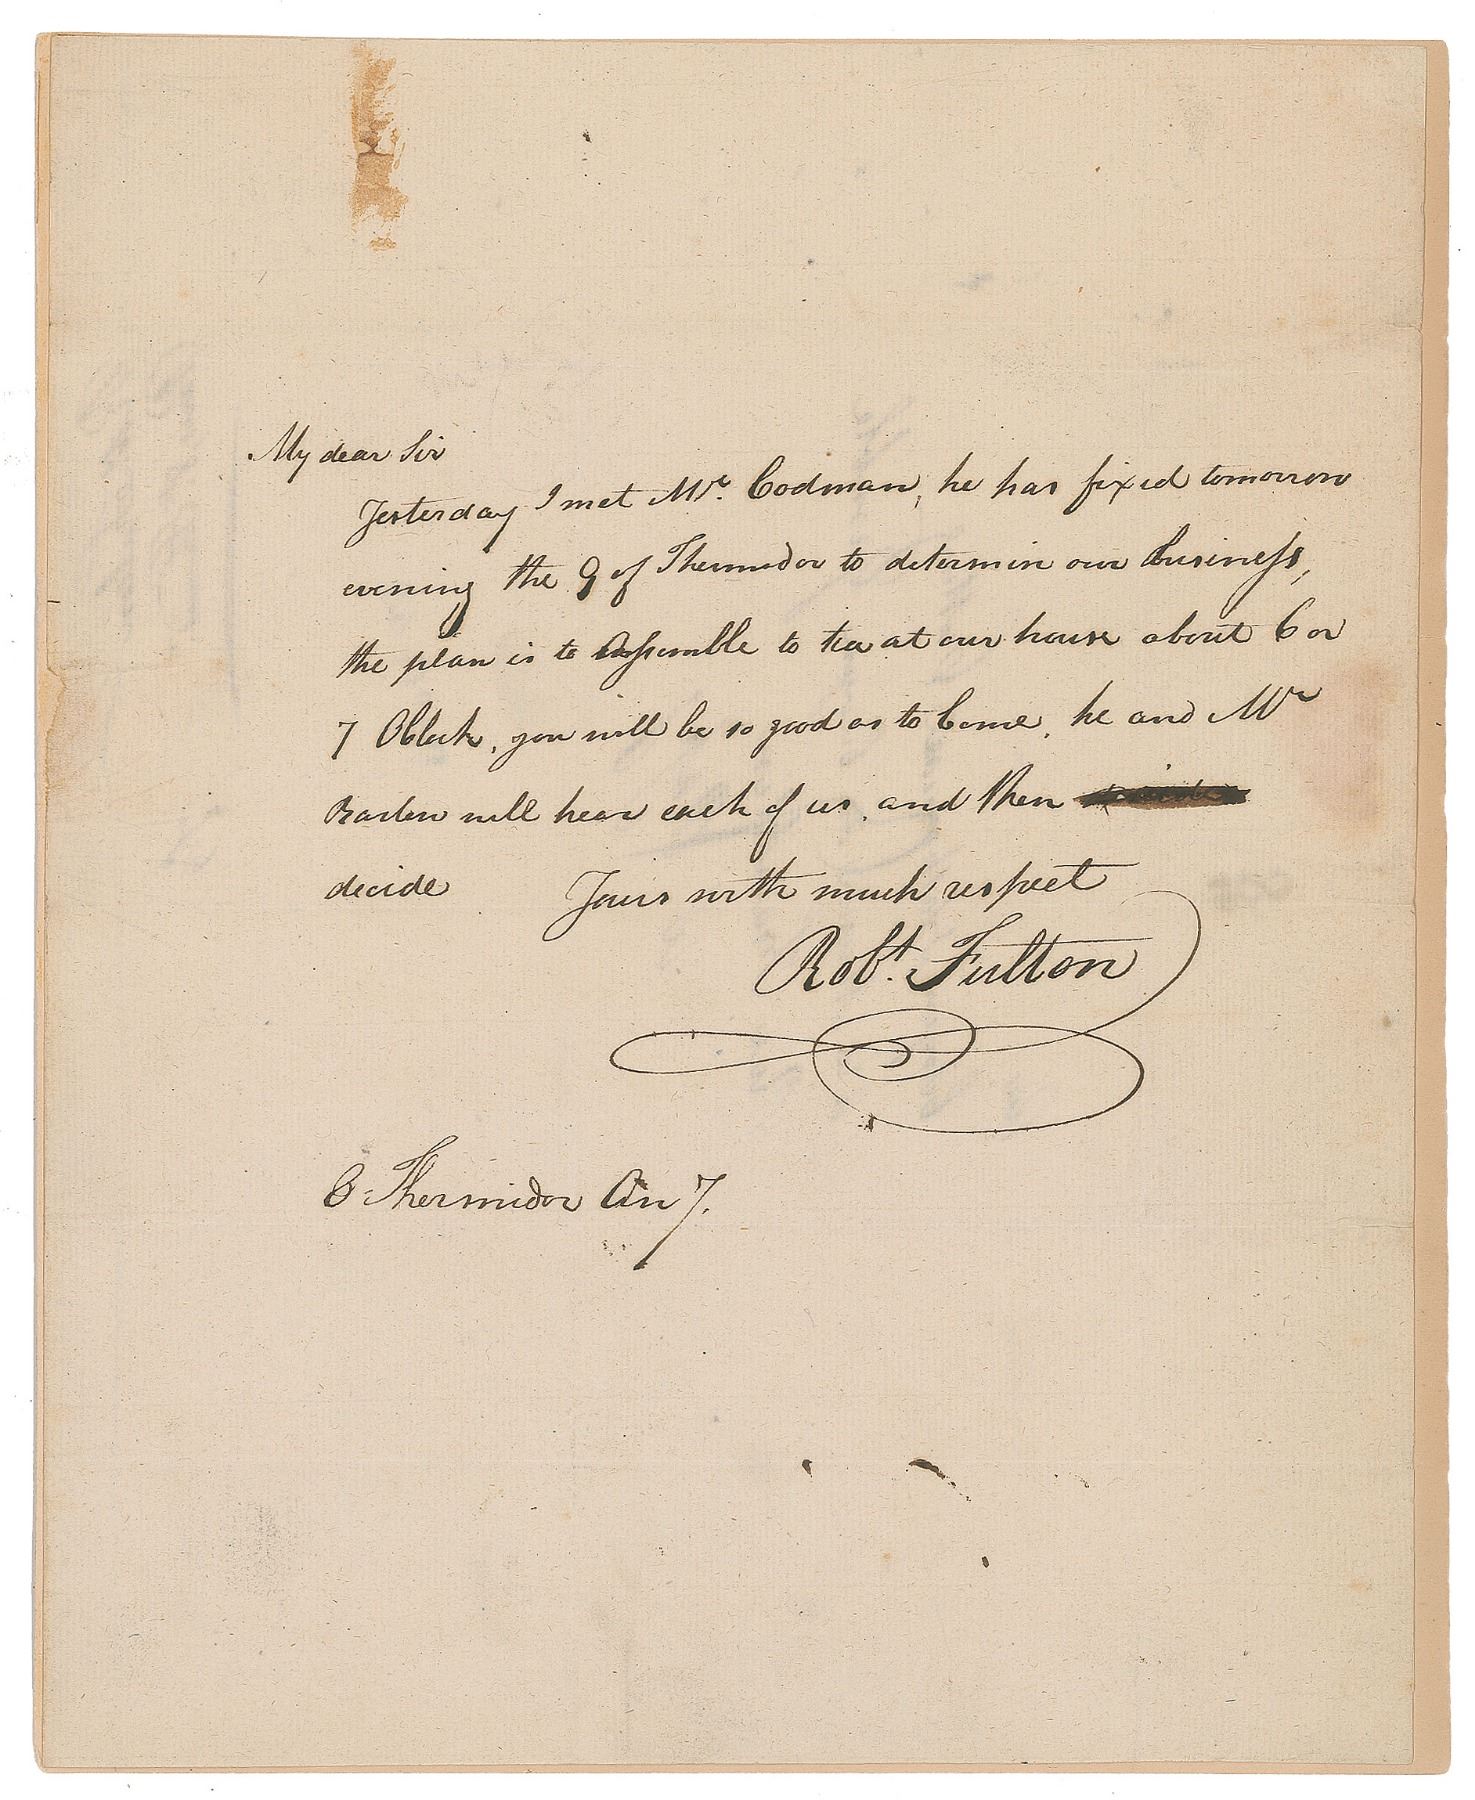 My dear Sir
Yesterday I met Mr. Codman, he has fixed tomorrow
evening the 9 of Thermidor to determin our business,
the plan is to Assemble to tea at our house about 6 or
7 OClock, you will be so good as to Come, he and Mr
Barlow will hear each of us, and then
decide Yours with much respect
Robt. Fulton
8 Thermidor An 7.